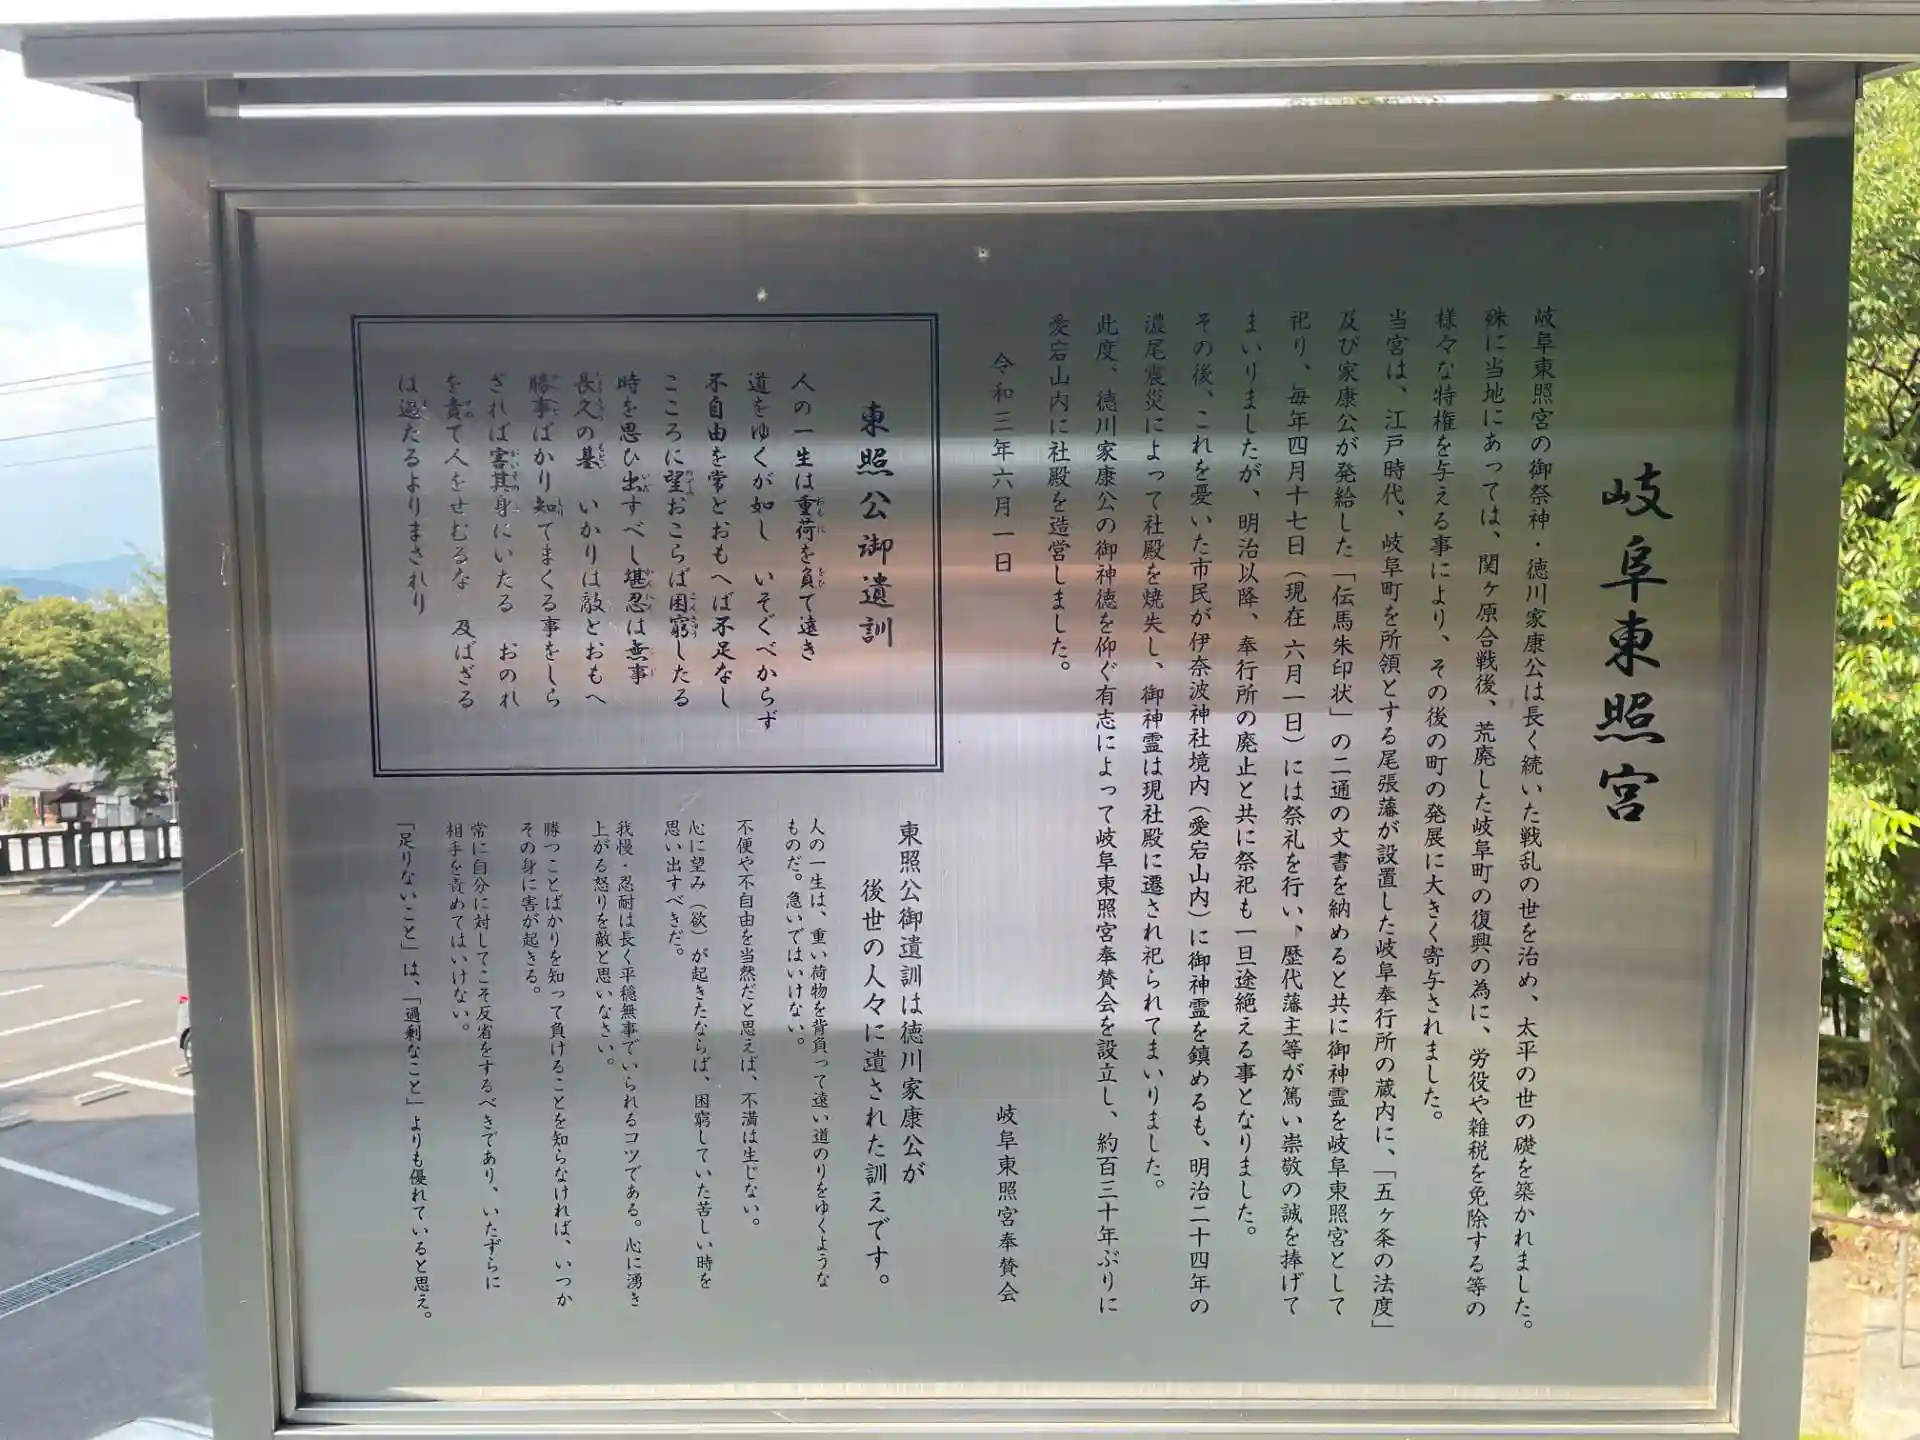 岐阜東照宮
岐阜東照宮の御祭神・徳川家康公は長く続いた戦乱の世を治め、太平の世の礎を築かれました。
殊に当地にあっては、関ヶ原合戦後、荒廃した岐阜町の復興の為に、労役や雑税を免除する等の
様々な特権を与える事により、その後の町の発展に大きく寄与されました。
当宮は、江戸時代、岐阜町を所領とする尾張藩が設置した岐阜奉行所の蔵内に、「五ヶ条の法度」
及び家康公が発給した「伝馬朱印状」の二通の文書を納めると共に御神霊を岐阜東照宮として
祀り、毎年四月十七日(現在 六月一日)には祭礼を行い、歴代藩主等が篤い崇敬の誠を捧げて
まいりましたが、明治以降、奉行所の廃止と共に祭祀も一旦途絶える事となりました。
その後、これを憂いた市民が伊奈波神社境内(愛宕山内)に御神霊を鎮めるも、明治二十四年の
濃尾震災によって社殿を焼失し、御神霊は現社殿に遷され祀られてまいりました。
此度、徳川家康公の御神徳を仰ぐ有志によって岐阜東照宮奉賛会を設立し、約百三十年ぶりに
愛宕山内に社殿を造営しました。
令和三年六月一日
岐阜東照宮奉賛会
東照公御遺訓
人の一生は重荷を負て遠き
道をゆくが如し いそぐべからず
不自由を常とおもへば不足なし
こころに望おこらば困窮したる
時を思ひ出すべし堪忍は無事
長久の基 いかりは敵とおもへ
勝事ばかり知てまくる事をしら
ざれば害其身にいたる おのれ
を責て人をせむるな 及ばざる
は過たるよりまされり
東照公御遺訓は徳川家康公が
後世の人々に遺された訓えです。
人の一生は、重い荷物を背負って遠い道のりをゆくような
ものだ。急いではいけない。
不便や不自由を当然だと思えば、不満は生じない。
心に望み(欲)が起きたならば、困窮していた苦しい時を
思い出すべきだ。
我慢・忍耐は長く平穏無事でいられるコツである。心に湧き
上がる怒りを敵と思いなさい。
勝つことばかりを知って負けることを知らなければ、いつか
その身に害が起きる。
常に自分に対してこそ反省をするべきであり、いたずらに
相手を責めてはいけない。
「足りないこと」は、「過剰なこと」よりも優れていると思え。